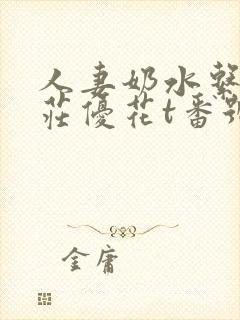 人妻奶水
莊優花t番
金庸